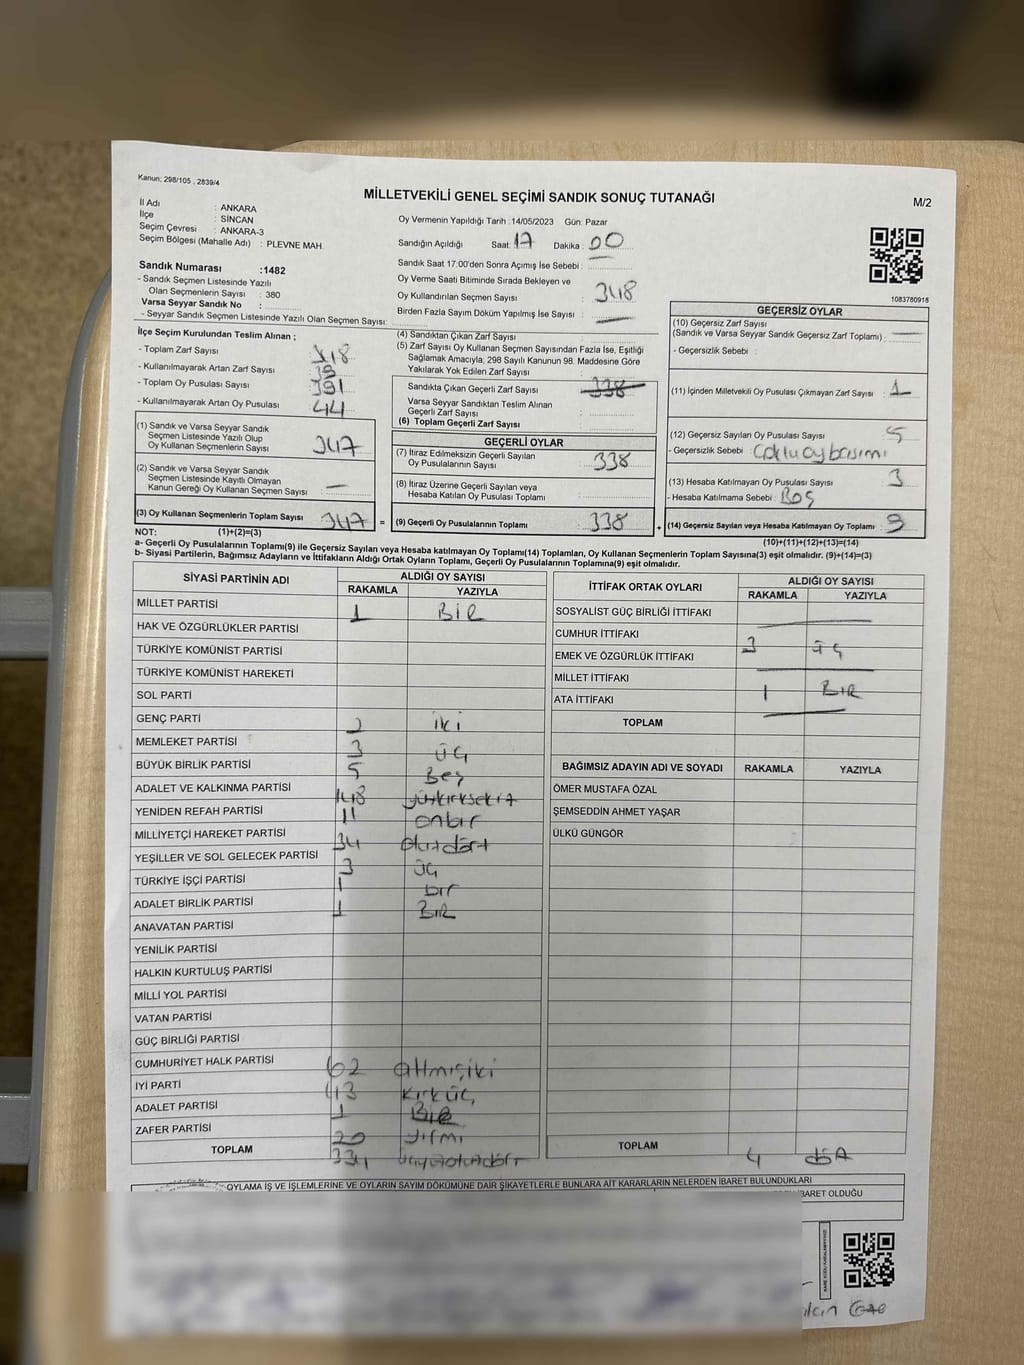 Kanun: 298/105 , 2839/4
MİLLETVEKİLİ GENEL SEÇİMİ SANDIK SONUÇ TUTANAĞI
M/2
İl Adı : ANKARA
İlçe : SİNCAN
Seçim Çevresi : ANKARA-3
Seçim Bölgesi (Mahalle Adı) : PLEVNE MAH.
Oy Vermenin Yapıldığı Tarih :14/05/2023 Gün: Pazar
Sandığın Açıldığı Saat: 17 Dakika : 00
Sandık Saat 17:00'den Sonra Açımış İse Sebebi :
Oy Verme Saati Bitiminde Sırada Bekleyen ve
Oy Kullandırılan Seçmen Sayısı : 348
Birden Fazla Sayım Döküm Yapılmış İse Sayısı : —
1083780918
Sandık Numarası :1482
- Sandık Seçmen Listesinde Yazılı
Olan Seçmenlerin Sayısı : 380
Varsa Seyyar Sandık No :
- Seyyar Sandık Seçmen Listesinde Yazılı Olan Seçmen Sayısı:
İlçe Seçim Kurulundan Teslim Alınan ;
- Toplam Zarf Sayısı
- Kullanılmayarak Artan Zarf Sayısı
- Toplam Oy Pusulası Sayısı 391
- Kullanılmayarak Artan Oy Pusulası 44
(1) Sandık ve Varsa Seyyar Sandık
Seçmen Listesinde Yazılı Olup
Oy Kullanan Seçmenlerin Sayısı : 347
(2) Sandık ve Varsa Seyyar Sandık
Seçmen Listesinde Kayıtlı Olmayan
Kanun Gereği Oy Kullanan Seçmen Sayısı : —
(3) Oy Kullanan Seçmenlerin Toplam Sayısı 347 =
(4) Sandıktan Çıkan Zarf Sayısı :
(5) Zarf Sayısı Oy Kullanan Seçmen Sayısından Fazla İse, Eşitliği
Sağlamak Amacıyla, 298 Sayılı Kanunun 98. Maddesine Göre
Yakılarak Yok Edilen Zarf Sayısı :
Sandıkta Çıkan Geçerli Zarf Sayısı : 338
Varsa Seyyar Sandıktan Teslim Alınan
Geçerli Zarf Sayısı :
(6) Toplam Geçerli Zarf Sayısı :
GEÇERLİ OYLAR
(7) İtiraz Edilmeksizin Geçerli Sayılan
Oy Pusulalarının Sayısı : 338
(8) İtiraz Üzerine Geçerli Sayılan veya
Hesaba Katılan Oy Pusulası Toplamı :
(9) Geçerli Oy Pusulalarının Toplamı : 338 +
GEÇERSİZ OYLAR
(10) Geçersiz Zarf Sayısı
(Sandık ve Varsa Seyyar Sandık Geçersiz Zarf Toplamı) : —
- Geçersizlik Sebebi :
(11) İçinden Milletvekili Oy Pusulası Çıkmayan Zarf Sayısı : 1
(12) Geçersiz Sayılan Oy Pusulası Sayısı : 5
- Geçersizlik Sebebi : Çoklu oy basımı
(13) Hesaba Katılmayan Oy Pusulası Sayısı : 3
- Hesaba Katılmama Sebebi : Boş
(14) Geçersiz Sayılan veya Hesaba Katılmayan Oy Toplamı : 9
NOT: (1)+(2)=(3) (10)+(11)+(12)+(13)=(14)
a- Geçerli Oy Pusulalarının Toplamı(9) ile Geçersiz Sayılan veya Hesaba katılmayan Oy Toplamı(14) Toplamları, Oy Kullanan Seçmenlerin Toplam Sayısına(3) eşit olmalıdır. (9)+(14)=(3)
b- Siyasi Partilerin, Bağımsız Adayların ve İttifakların Aldığı Ortak Oyların Toplamı, Geçerli Oy Pusulalarının Toplamına(9) eşit olmalıdır.
SİYASİ PARTİNİN ADI ALDIĞI OY SAYISI
RAKAMLA YAZIYLA
MİLLET PARTİSİ 1 BİR
HAK VE ÖZGÜRLÜKLER PARTİSİ
TÜRKİYE KOMÜNİST PARTİSİ
TÜRKİYE KOMÜNİST HAREKETİ
SOL PARTİ
GENÇ PARTİ 2 iki
MEMLEKET PARTİSİ 3 üç
BÜYÜK BİRLİK PARTİSİ 5 Beş
ADALET VE KALKINMA PARTİSİ 148 yüzkırksekiz
YENİDEN REFAH PARTİSİ 11 onbir
MİLLİYETÇİ HAREKET PARTİSİ 34 otuzdört
YEŞİLLER VE SOL GELECEK PARTİSİ 3 üç
TÜRKİYE İŞÇİ PARTİSİ 1 bir
ADALET BİRLİK PARTİSİ 1 BİR
ANAVATAN PARTİSİ
YENİLİK PARTİSİ
HALKIN KURTULUŞ PARTİSİ
MİLLİ YOL PARTİSİ
VATAN PARTİSİ
GÜÇ BİRLİĞİ PARTİSİ
CUMHURİYET HALK PARTİSİ 62 altmışiki
İYİ PARTİ 43 kırküç
ADALET PARTİSİ 1 BİR
ZAFER PARTİSİ 20 yirmi
TOPLAM 334 üçyüzotuzdört
İTTİFAK ORTAK OYLARI ALDIĞI OY SAYISI
RAKAMLA YAZIYLA
SOSYALİST GÜÇ BİRLİĞİ İTTİFAKI —
CUMHUR İTTİFAKI 3 üç
EMEK VE ÖZGÜRLÜK İTTİFAKI —
MİLLET İTTİFAKI 1 BİR
ATA İTTİFAKI —
TOPLAM
BAĞIMSIZ ADAYIN ADI VE SOYADI RAKAMLA YAZIYLA
ÖMER MUSTAFA ÖZAL
ŞEMSEDDİN AHMET YAŞAR
ÜLKÜ GÜNGÖR
TOPLAM 4 dört
OYLAMA İŞ VE İŞLEMLERİNE VE OYLARIN SAYIM DÖKÜMÜNE DAİR ŞİKAYETLERLE BUNLARA AİT KARARLARIN NELERDEN İBARET BULUNDUKLARI
BARET OLDUĞU